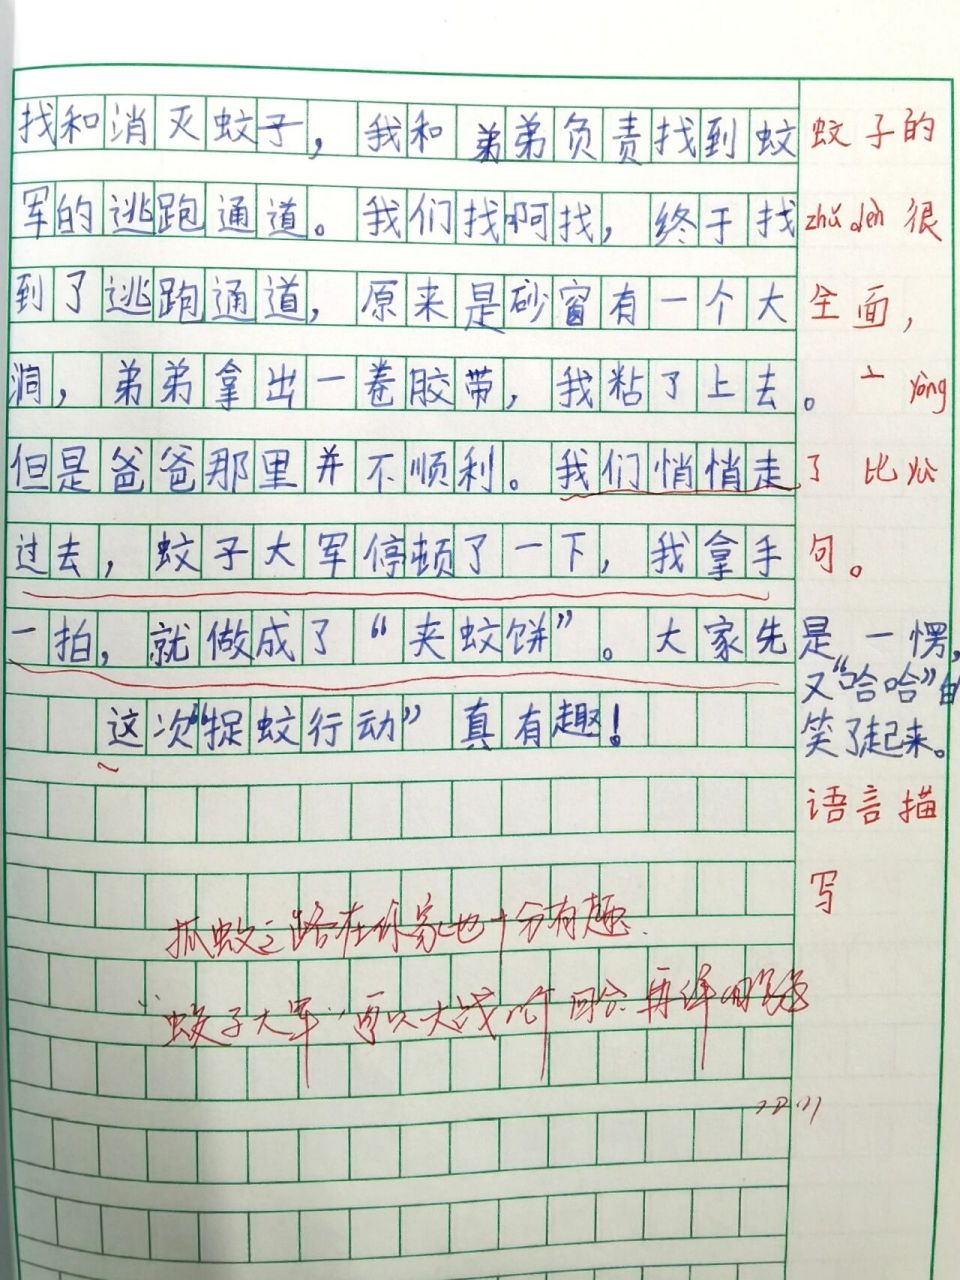 找和消灭蚊子，我和弟弟负责找到蚊
军的逃跑通道。我们找啊找，终于找
到了逃跑通道，原来是砂窗有一个大
洞，弟弟拿出一卷胶带，我粘了上去。
但是爸爸那里并不顺利。我们悄悄走
过去，蚊子大军停顿了一下，我拿手
一拍，就做成了“夹蚊饼”。大家先是一愣，
又“哈哈”的
笑了起来。
这次“捉蚊行动”真有趣！
蚊子的
很
全面，
yòng
了比
句。
语言描
写
抓蚊之路在你家也十分有趣.
“蚊子大军”可以大战 回合.再